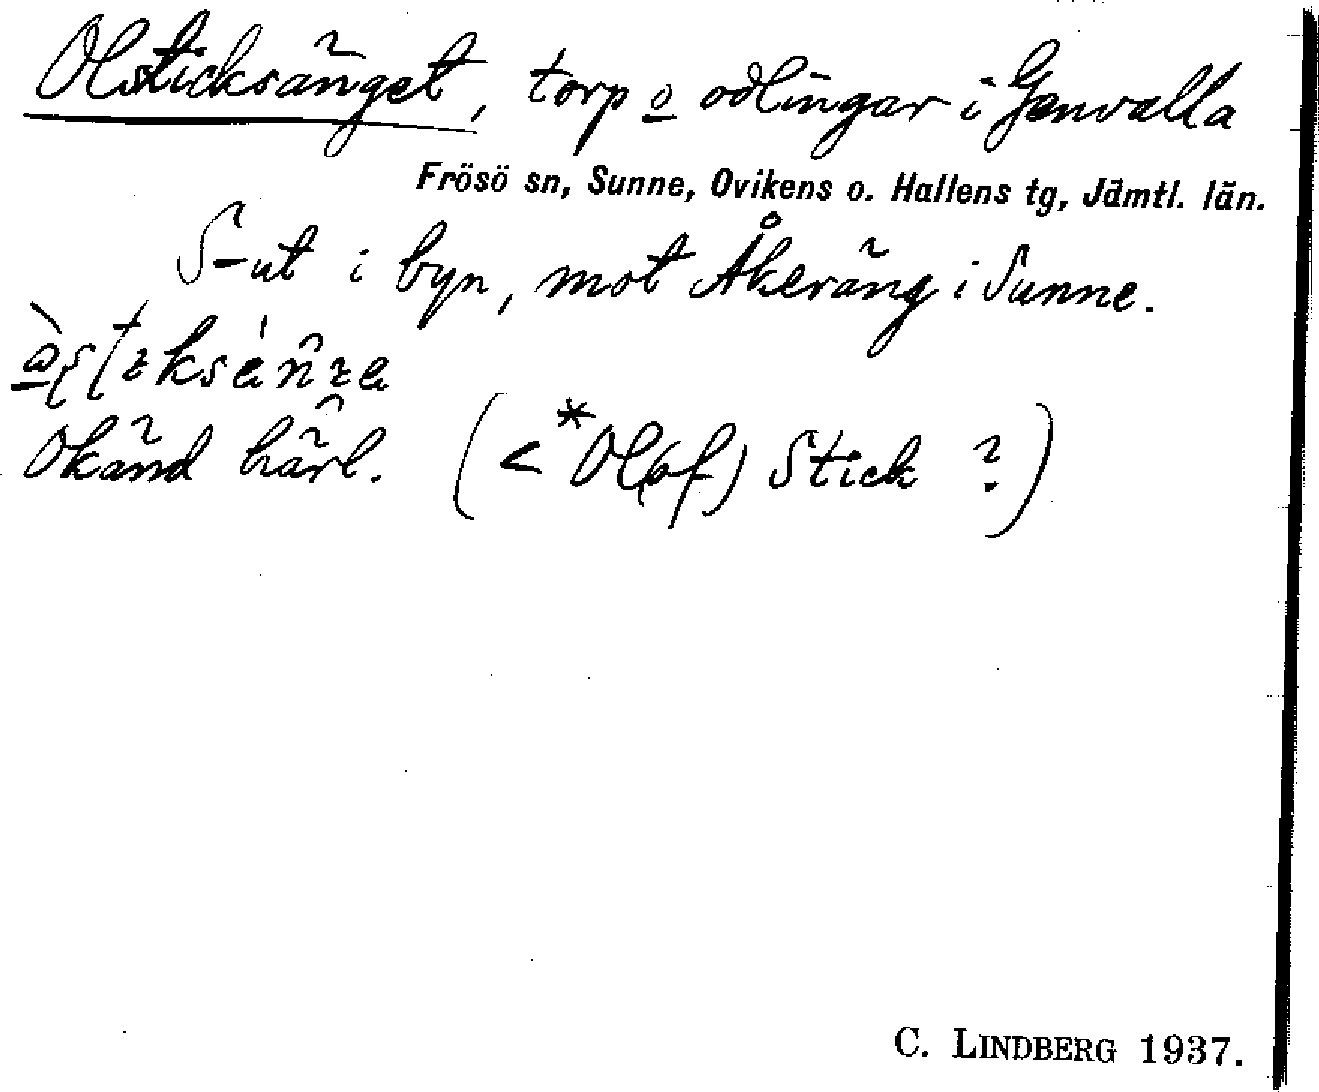 Olsticksänget, torp o odlingar i Genvalla
Frösö sn, Sunne, Ovikens o. Hallens tg, Jämtl. län.
S-ut i byn, mot Åkeräng i Sunne.
Okänd härl. (< *Ol(of) Stick ?)
C. LINDBERG 1937.